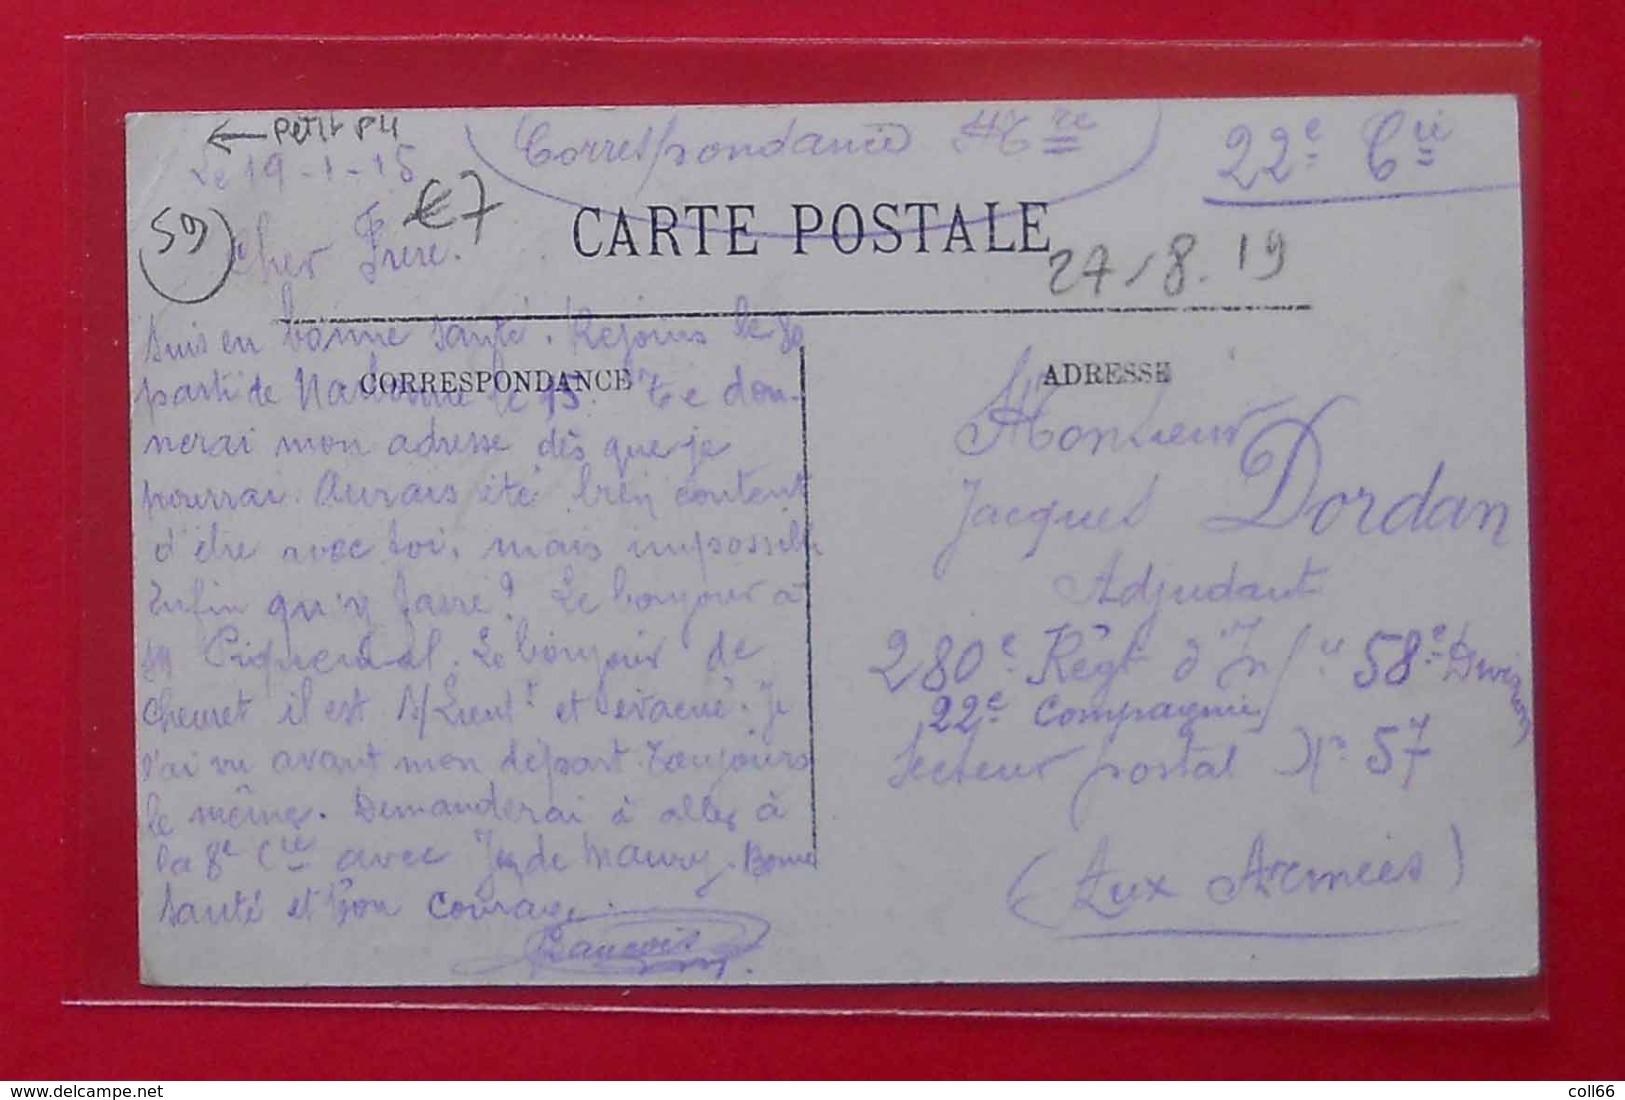 ← Petit pli
Le 19-1-15
€7
59
Correspondance Mre
22e Cie
CARTE POSTALE
27/8.19
Cher Frère.
CORRESPONDANCE
ADRESSE
Suis en bonne santé. Rejoins le 80
parti de Narbonne le 15. Te don-
nerai mon adresse dès que je
pourrai. Aurais été bien content
d'être avec toi, mais impossible
Enfin qu'y faire? Le bonjour à
Piquemal. Le bonjour de
Cheuret il est S/Lieut t et évacué. Je
l'ai vu avant mon départ toujours
le même. Demanderai à aller à
la 8e Cie avec de Maury. Bonne
santé et bon courage.
Monsieur
Jacques Dordan
Adjudant
280e Régt d'Inf ie 58e Division
22e Compagnie
Secteur postal No 57
(Aux Armées)
© delcampe.net
coll66